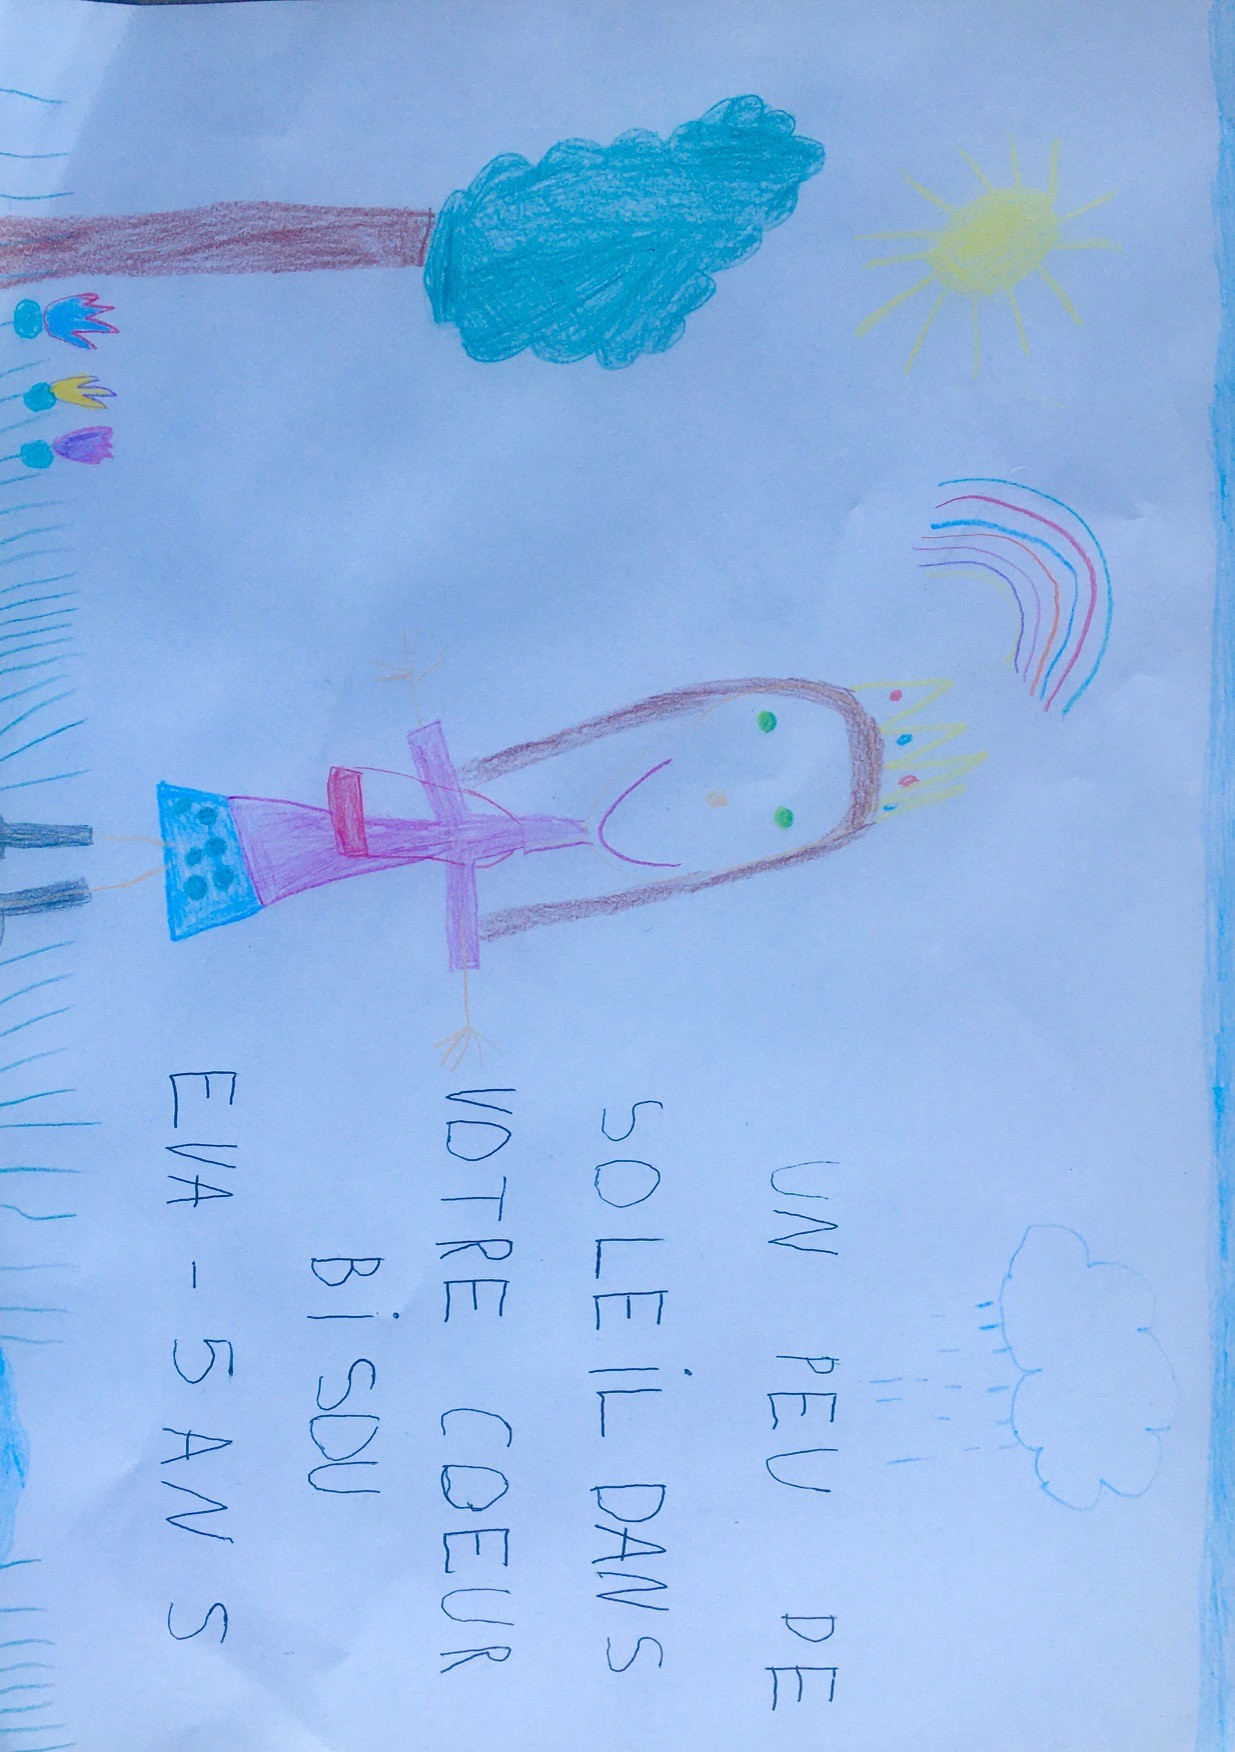 UN PEU DE
SOLEiL DANS
VOTRE COEUR
BiSOU
EVA - 5 ANS